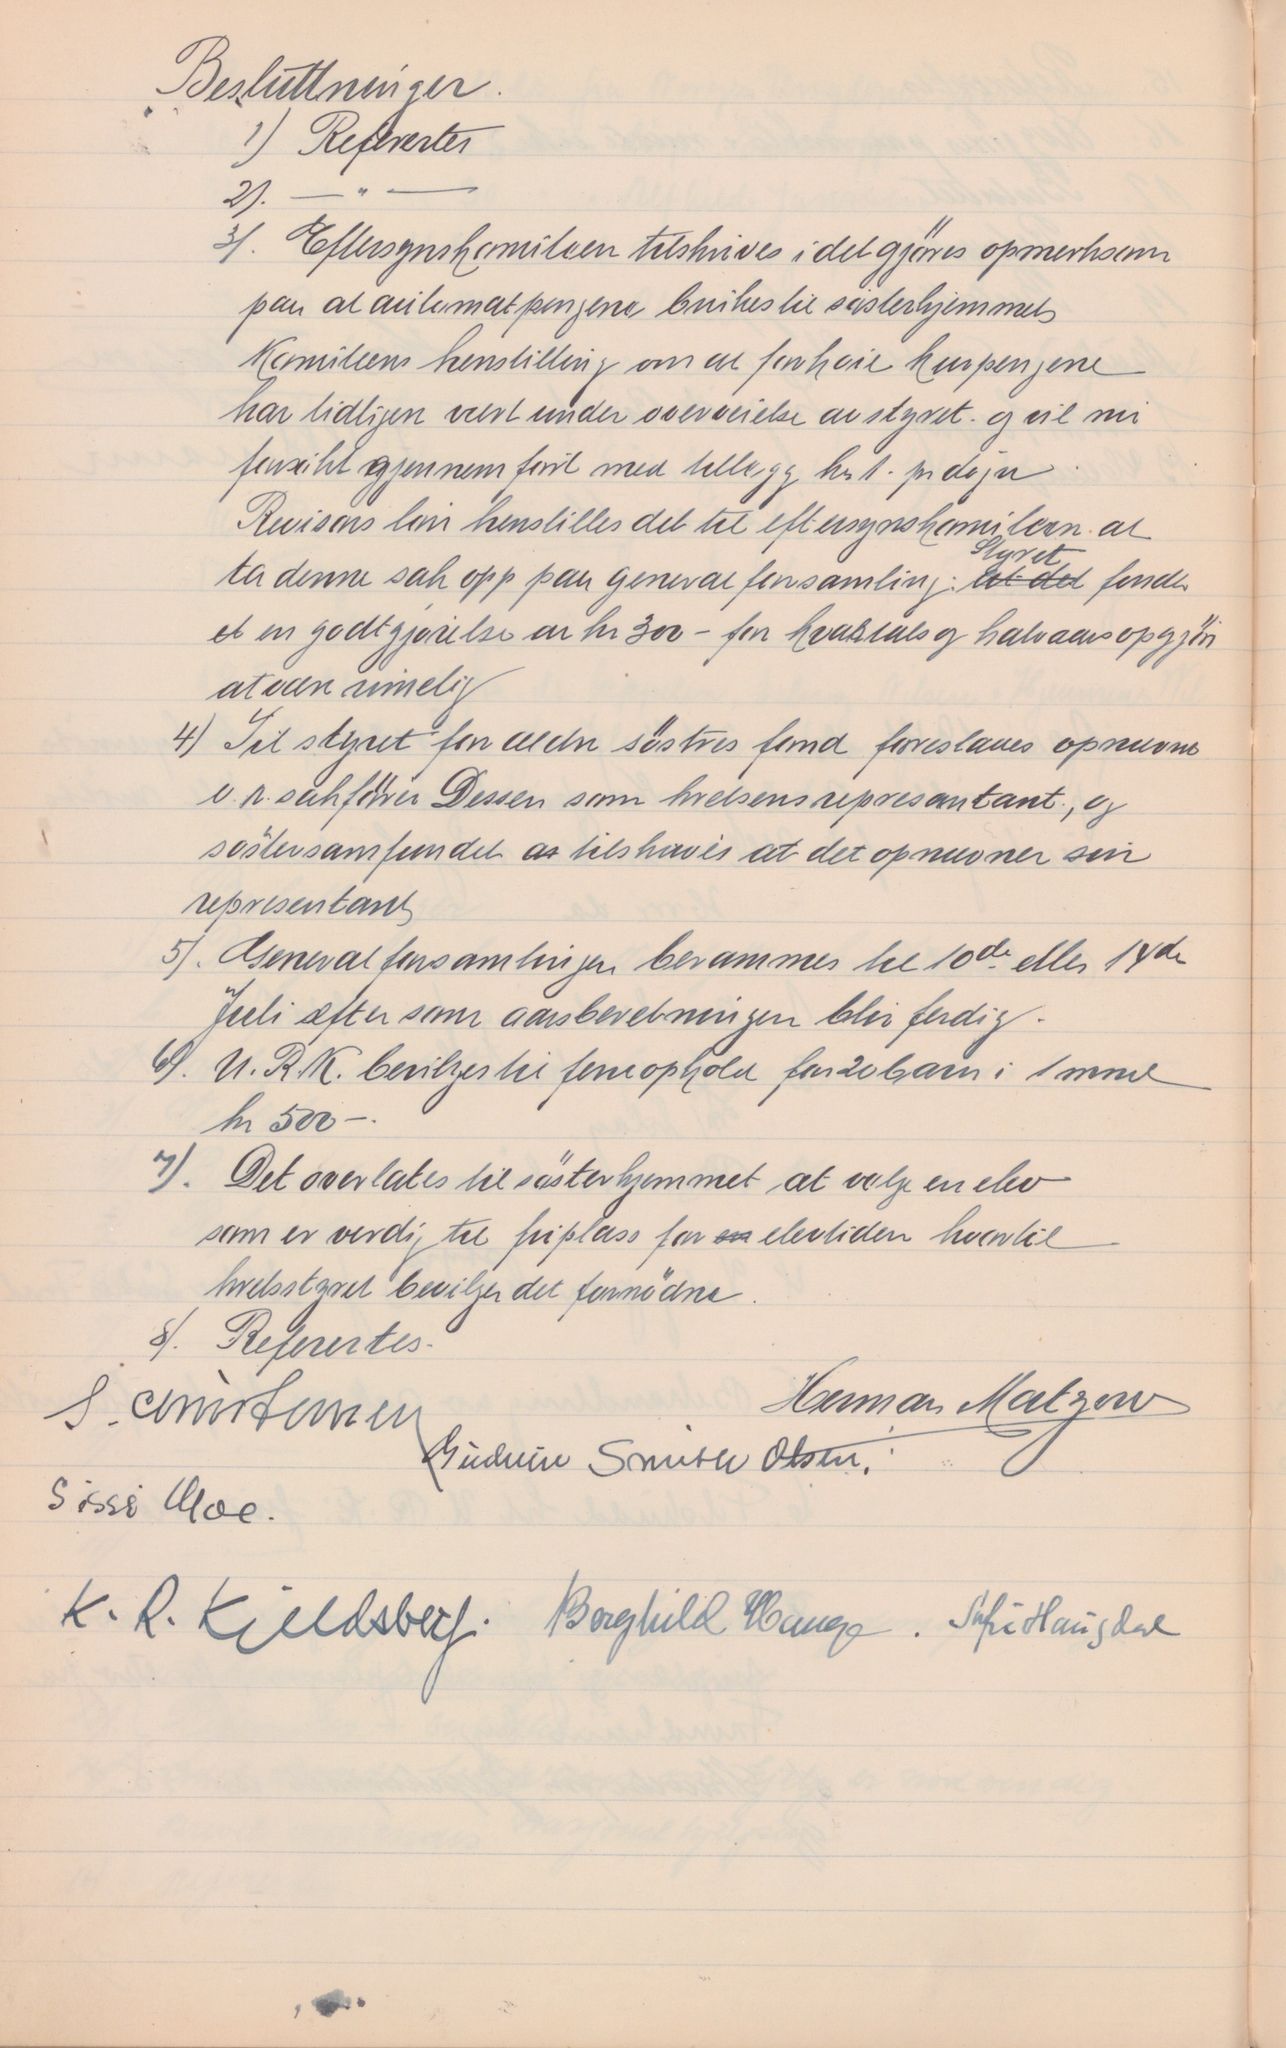 Besluttninger.
1) Referertes
2). — " —
3). Eftersynskomiteen tilskrives i det gjöres opmerksom
paa at automatpengene brukes til søsterhjemmet
Komiteens henstilling om at forhøie kurpengene
har tidligere vært under overveielse av styret. og vil nu
forsøkt gjennemført med tillegg kr 1. pr døgn.
Revisors løn henstilles det til eftersynskomiteen at
ta denne sak opp paa generalforsamling: Styret at det fonder
et en godtgjørelse av kr 300 – for kvartals og halvaarsopgjör
at være rimelig
4) Til styret for ældre söstres fond foreslaaes opnævne
o.r.sakförer Dessen som kredsens represantant., og
söstersamfundet at tilskrives at det opnævner sin
representant
5). Generalforsamlingen berammes til 10de eller 14de
Juli æfter som aarsberetningen blir ferdig.
6). U.R.K. bevilges til ferieophold for 20 barn i 1 mnd
kr 500 –.
7). Det overlates til sösterhjemmet at velge en elev
som er verdig til friplass for en elevtiden hvortil
kredsstyret bevilger det fornödne.
8). Referertes.
S. Christensen Herman Matzow
Gudrun Smith Olsen.
Sissi Moe.
K. R. Kjeldsberg. Borghild Hauge. Haugdal